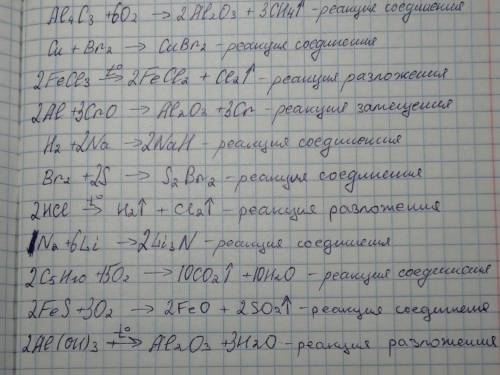 Al₄C₃ + 6O₂ → 2Al₂O₃ + 3CH₄↑ - реакция соединения
Cu + Br₂ → CuBr₂ - реакция соединения
2FeCl₃ t° → 2FeCl₂ + Cl₂↑ - реакция разложения
2Al + 3CrO → Al₂O₃ + 3Cr - реакция замещения
H₂ + 2Na → 2NaH - реакция соединения
Br₂ + 2S → S₂Br₂ - реакция соединения
2HCl t° → H₂↑ + Cl₂↑ - реакция разложения
N₂ + 6Li → 2Li₃N - реакция соединения
2C₅H₁₀ + 15O₂ → 10CO₂↑ + 10H₂O - реакция соединения
2FeS + 3O₂ → 2FeO + 2SO₂↑ - реакция соединения
2Al(OH)₃ t° → Al₂O₃ + 3H₂O - реакция разложения